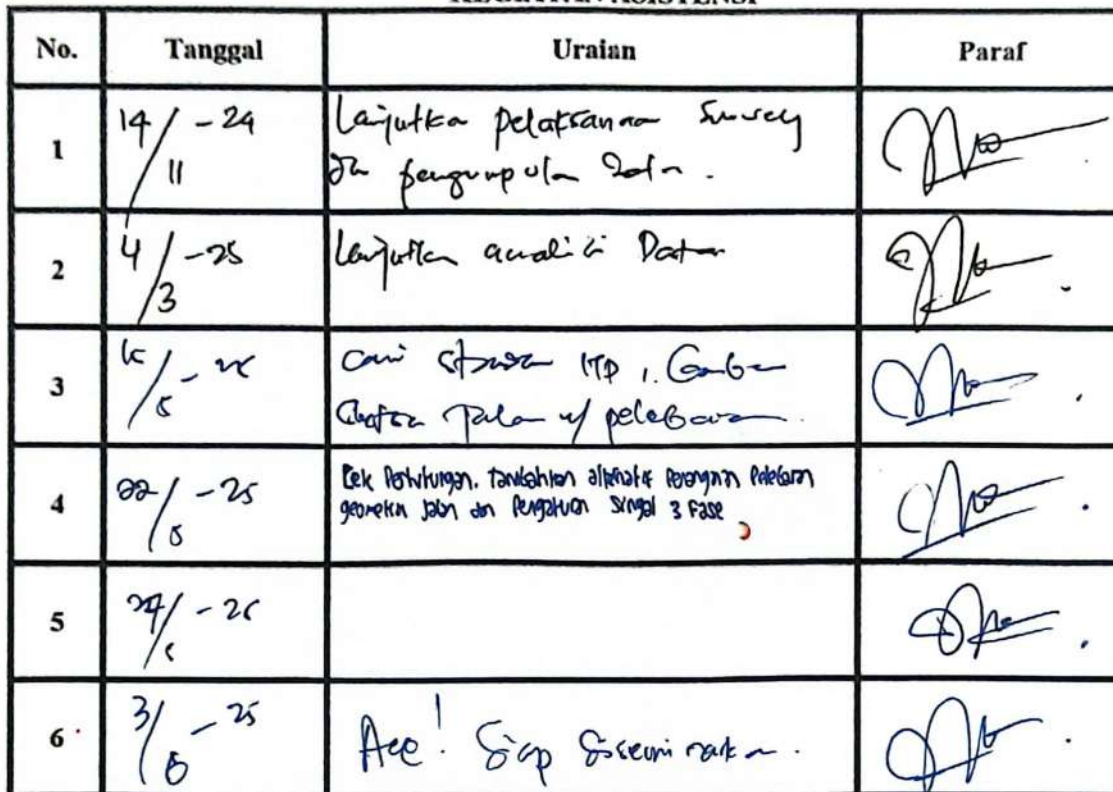 KEGIATAN ASISTENSI
No. Tanggal Uraian Paraf
1 14/11 - 24 Lanjutkan pelaksanaan Survey
dan pengumpulan Data.
2 4/3 - 25 Lanjutkan analisis Data
3 Gambar
Jalan u/ pelebaran.
4 22/5 - 25 Cek Perhitungan. Tambahkan alternatif Penanganan Pelebaran
geometrik Jalan dan Pengaturan Sinyal 3 Fase
5
6 - 25 Acc! Siap diseminarkan.